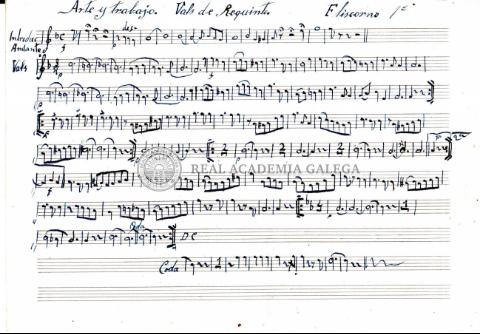 Arte y trabajo. Vals de Requinto. Fliscorno 1º
Introduc
Andante
Vals
REAL ACADEMIA GALEGA
Coda
DC
Coda